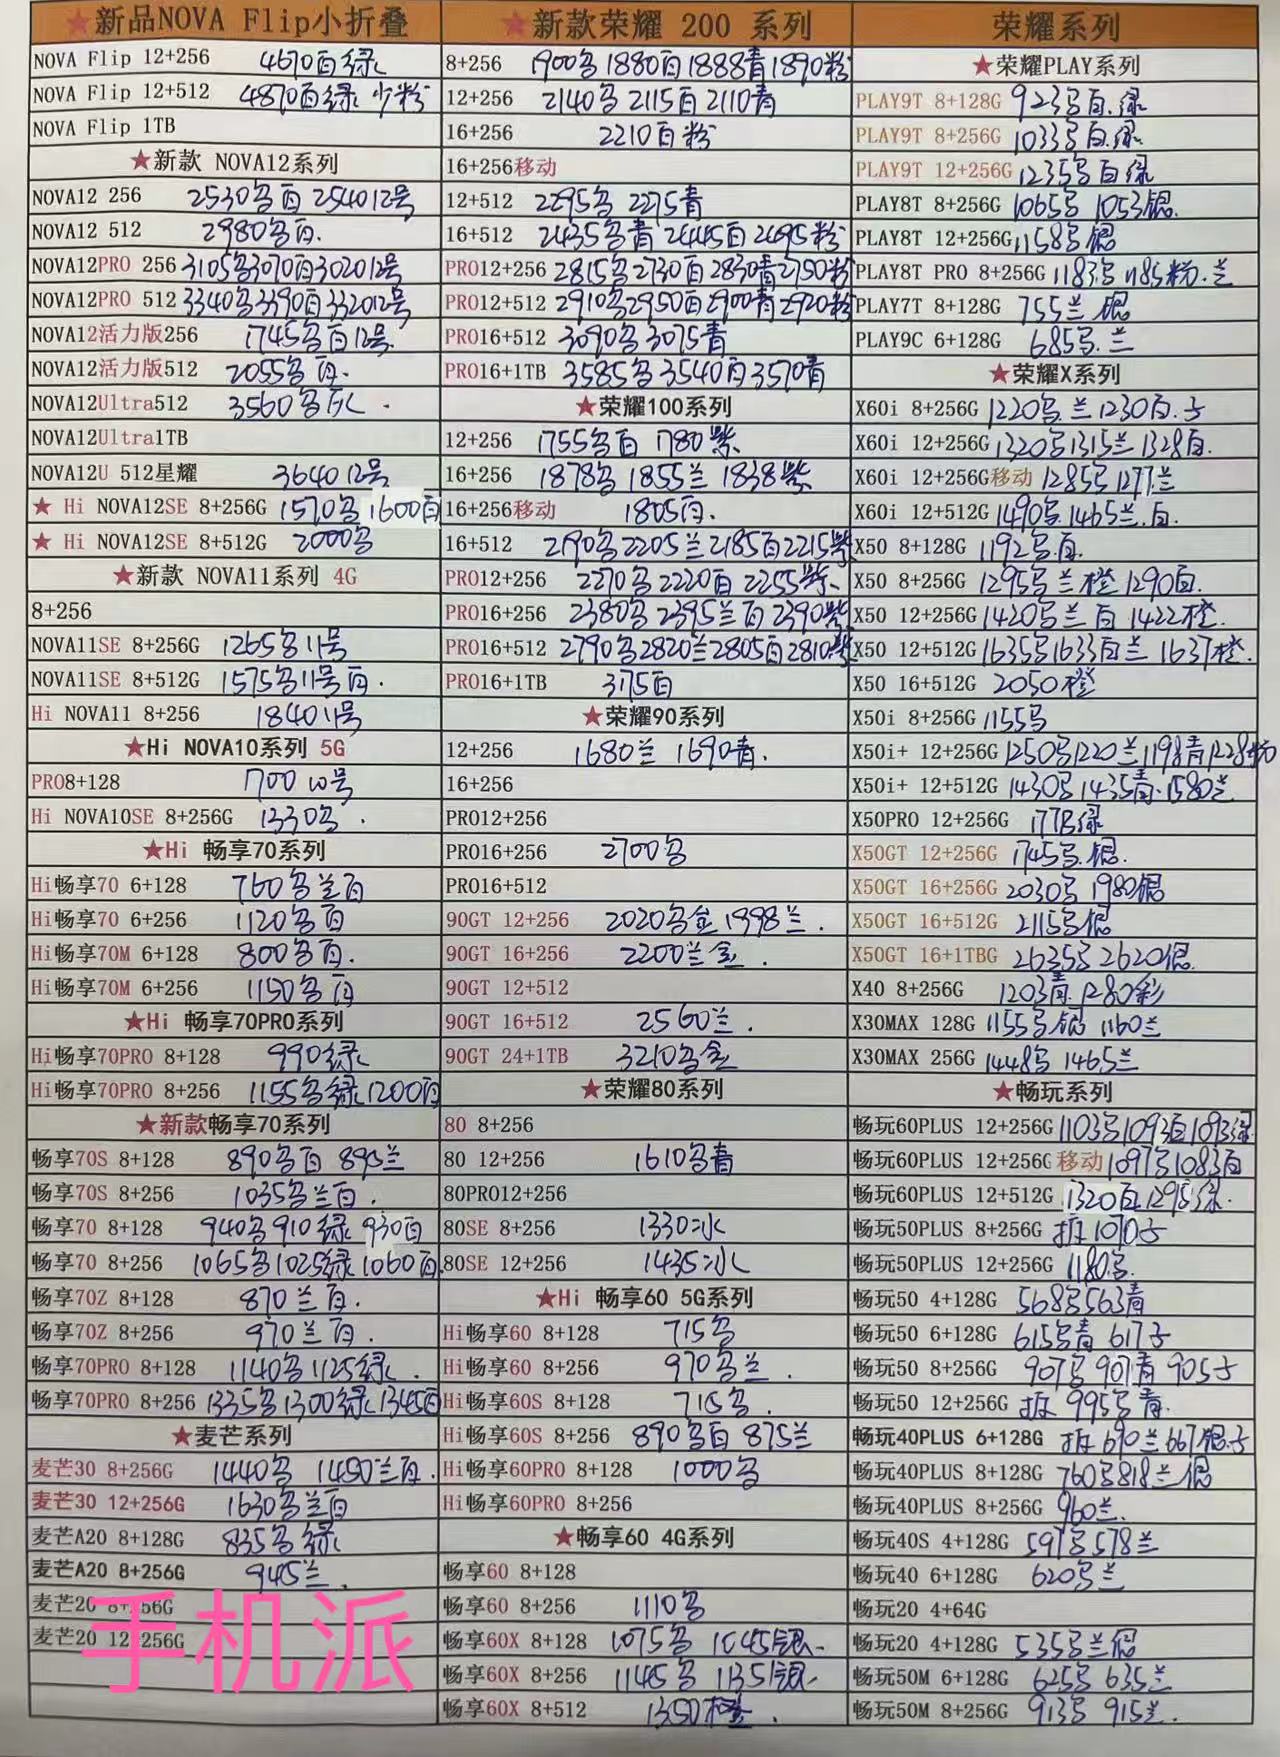 ★新品NOVA Flip小折叠
NOVA Flip 12+256 4670白绿
NOVA Flip 12+512 4870白绿 少粉
NOVA Flip 1TB
★新款 NOVA12系列
NOVA12 256 2530多白 254012号
NOVA12 512 2980多白.
NOVA12PRO 256 3105多3070白302012号
NOVA12PRO 512 3340多3390白332012号
NOVA12活力版256 1745多白12号
NOVA12活力版512 2055多白.
NOVA12Ultra512 3560多灰.
NOVA12Ultra1TB
NOVA12U 512星耀 364012号
★ Hi NOVA12SE 8+256G 1570多 1600白
★ Hi NOVA12SE 8+512G 2000多
★新款 NOVA11系列 4G
8+256
NOVA11SE 8+256G 1265多11号
NOVA11SE 8+512G 1575多11号白.
Hi NOVA11 8+256 184011号
★Hi NOVA10系列 5G
PRO8+128 1700 10号
Hi NOVA10SE 8+256G 1330多.
★Hi 畅享70系列
Hi畅享70 6+128 760多兰白
Hi畅享70 6+256 1120多白
Hi畅享70M 6+128 800多白.
Hi畅享70M 6+256 1150多白
★Hi 畅享70PRO系列
Hi畅享70PRO 8+128 990绿
Hi畅享70PRO 8+256 1155多绿1200白
★新款畅享70系列
畅享70S 8+128 890多白 895兰
畅享70S 8+256 1035多兰白.
畅享70 8+128 940多910绿 930白
畅享70 8+256 1065多1025绿1060白
畅享70Z 8+128 870兰白.
畅享70Z 8+256 970兰白.
畅享70PRO 8+128 1140多1125绿.
畅享70PRO 8+256 1335多1300绿1345白
★麦芒系列
麦芒30 8+256G 1440多 1450兰白.
麦芒30 12+256G 1630多兰白
麦芒A20 8+128G 835多绿
麦芒A20 8+256G 945兰.
麦芒20 8+256G
麦芒20 12+256G
手机派
★新款荣耀 200 系列
8+256 1900多1880白1888青1890粉
12+256 2140多2115白2110青
16+256 2210白粉
16+256移动
12+512 2295多 2275青
16+512 2435多青2445白2495粉
PRO12+256 2815多2730白2830青2750粉
PRO12+512 2910多2950白2900青2920粉
PRO16+512 3090多3075青
PRO16+1TB 3585多3540白3570青
★荣耀100系列
12+256 1755多白 1780紫
16+256 1878多 1855兰 1838紫
16+256移动 1805白.
16+512 2190多2205兰2185白2215紫
PRO12+256 2270多2220白2255紫.
PRO16+256 2380多2395兰白2390紫
PRO16+512 2790多2820兰2805白2810紫
PRO16+1TB 3175白
★荣耀90系列
12+256 1680兰 1690青.
16+256
PRO12+256
PRO16+256 2700多
PRO16+512
90GT 12+256 2020多金1998兰.
90GT 16+256 2200兰金.
90GT 12+512
90GT 16+512 2560兰.
90GT 24+1TB 3210多金
★荣耀80系列
80 8+256
80 12+256 1610多青
80PRO12+256
80SE 8+256 1330冰
80SE 12+256 1435冰
★Hi 畅享60 5G系列
Hi畅享60 8+128 715多
Hi畅享60 8+256 970多兰.
Hi畅享60S 8+128 715多.
Hi畅享60S 8+256 890多白 875兰
Hi畅享60PRO 8+128 1000多
Hi畅享60PRO 8+256
★畅享60 4G系列
畅享60 8+128
畅享60 8+256 1110多
畅享60X 8+128 1075多 1045银.
畅享60X 8+256 1145多 1135银.
畅享60X 8+512 1350橙.
荣耀系列
★荣耀PLAY系列
PLAY9T 8+128G 923多白.绿
PLAY9T 8+256G 1033多白.绿
PLAY9T 12+256G 1235多白绿
PLAY8T 8+256G 1065多 1053银.
PLAY8T 12+256G 1158多银
PLAY8T PRO 8+256G 1183多1185粉.兰
PLAY7T 8+128G 755兰 银
PLAY9C 6+128G 685多.兰
★荣耀X系列
X60i 8+256G 1220多.兰1230白.子
X60i 12+256G 1320多1315兰1328白.
X60i 12+256G移动 1285多1277兰
X60i 12+512G 1490多.1465兰.白.
X50 8+128G 1192多.白.
X50 8+256G 1295多兰橙1290白.
X50 12+256G 1420多兰白1422橙.
X50 12+512G 1635多1633白兰 1637橙.
X50 16+512G 2050橙
X50i 8+256G 1155多
X50i+ 12+256G 1250多1220兰1198青1228粉
X50i+ 12+512G 1430多1435青.1580兰
X50PRO 12+256G 1773绿
X50GT 12+256G 1745多.银.
X50GT 16+256G 2030多 1980银
X50GT 16+512G 2115多银
X50GT 16+1TBG 2635多2620银.
X40 8+256G 1203青.1280彩
X30MAX 128G 1155多银 1160兰
X30MAX 256G 1448多 1465兰
★畅玩系列
畅玩60PLUS 12+256G 1103多1093白1093绿
畅玩60PLUS 12+256G移动1097多1083白
畅玩60PLUS 12+512G 1320白1295绿.
畅玩50PLUS 8+256G 拆1070子
畅玩50PLUS 12+256G 1180多.
畅玩50 4+128G 568多563青
畅玩50 6+128G 615多青 617子
畅玩50 8+256G 907多 901青 905子
畅玩50 12+256G 拆 995多青.
畅玩40PLUS 6+128G 拆690兰667银子
畅玩40PLUS 8+128G 760多818兰银
畅玩40PLUS 8+256G 960兰.
畅玩40S 4+128G 597多578兰
畅玩40 6+128G 620多兰
畅玩20 4+64G
畅玩20 4+128G 535多兰银
畅玩50M 6+128G 625多 635兰
畅玩50M 8+256G 913多 915兰.